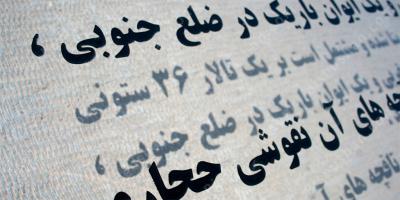 و یک ایوان باریک در ضلع جنوبی ،
شده و مشتمل است بر یک تالار ۳۶ ستونی
و یک ایوان باریک در ضلع جنوبی ،
چه های آن نقوشی حجاری
های آن